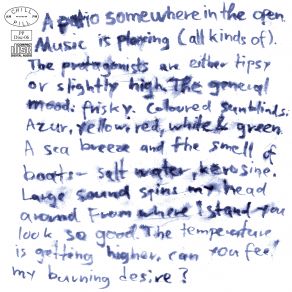 CHILL PILL
PP Disc06
COMPACT disc
A patio somewhere in the open.
Music is playing (all kinds of).
The protagonists are either tipsy
or slightly high. The general
mood: frisky. Coloured sunblinds:
Azur, yellow, red, white & green.
A sea breeze and the smell of
boats - salt water, kerosine.
Large sound spins my head
around From where I stand you
look so good. The temperature
is getting higher. can you feel
my burning desire?